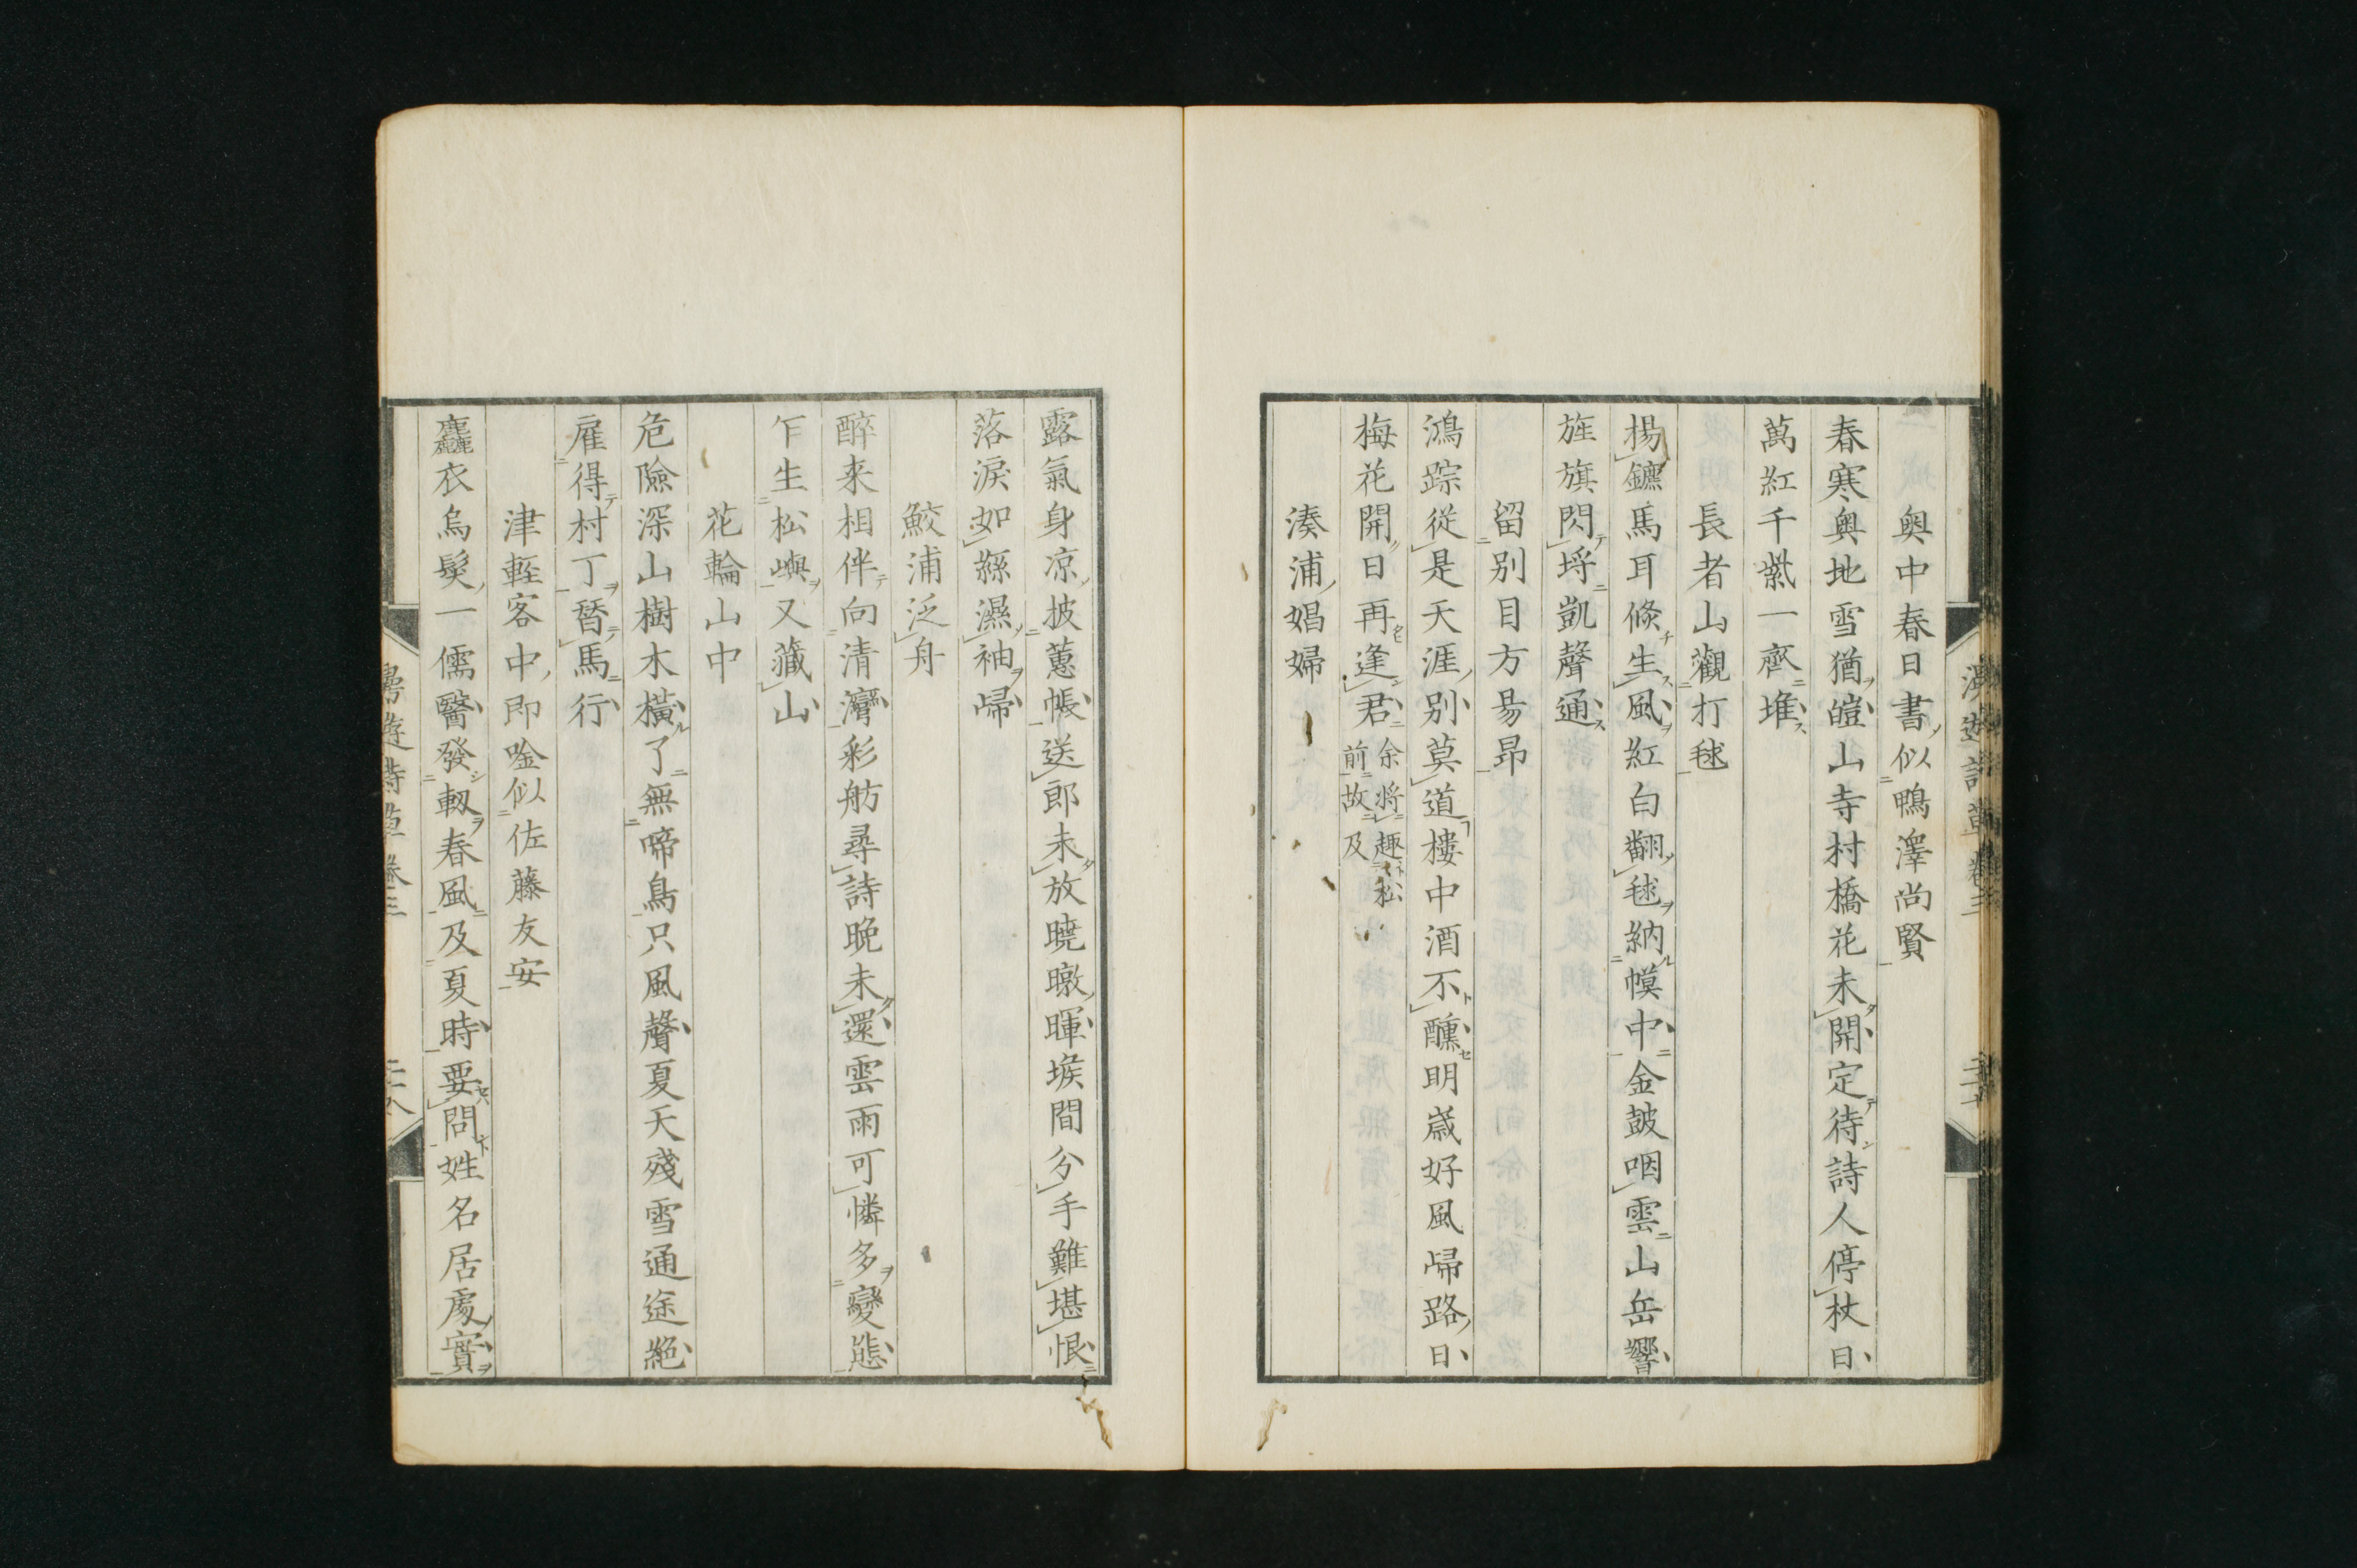 奥中春日書似鴨澤尚賢
春寒奥地雪猶皚山寺村橋花未開定待詩人停杖日
萬紅千紫一齊堆
長者山觀打毬
揚鑣馬耳倏生風紅白翻毬納幙中金鼓咽雲山岳響
旌旗閃埒凱聲通
留別目方昜昻
鴻踪從是天涯別莫道樓中酒不醺明歳好風歸路日
梅花開日再逢君余將趣松
前故及
湊浦娼婦
露氣身凉披蕙帳送郎未放曉暾暉堠間分手難堪恨
落淚如縣濕袖歸
鮫浦泛舟
醉来相伴向清灣彩舫尋詩晚未還雲雨可憐多變態
乍生松嶼又藏山
花輪山中
危險深山樹木横了無啼鳥只風聲夏天殘雪通途絶
雇得村丁暜馬行
津輕客中即唫似佐藤友安
麤衣烏髮一儒醫發軔春風及夏時要問姓名居處實
漫遊詩草 卷三